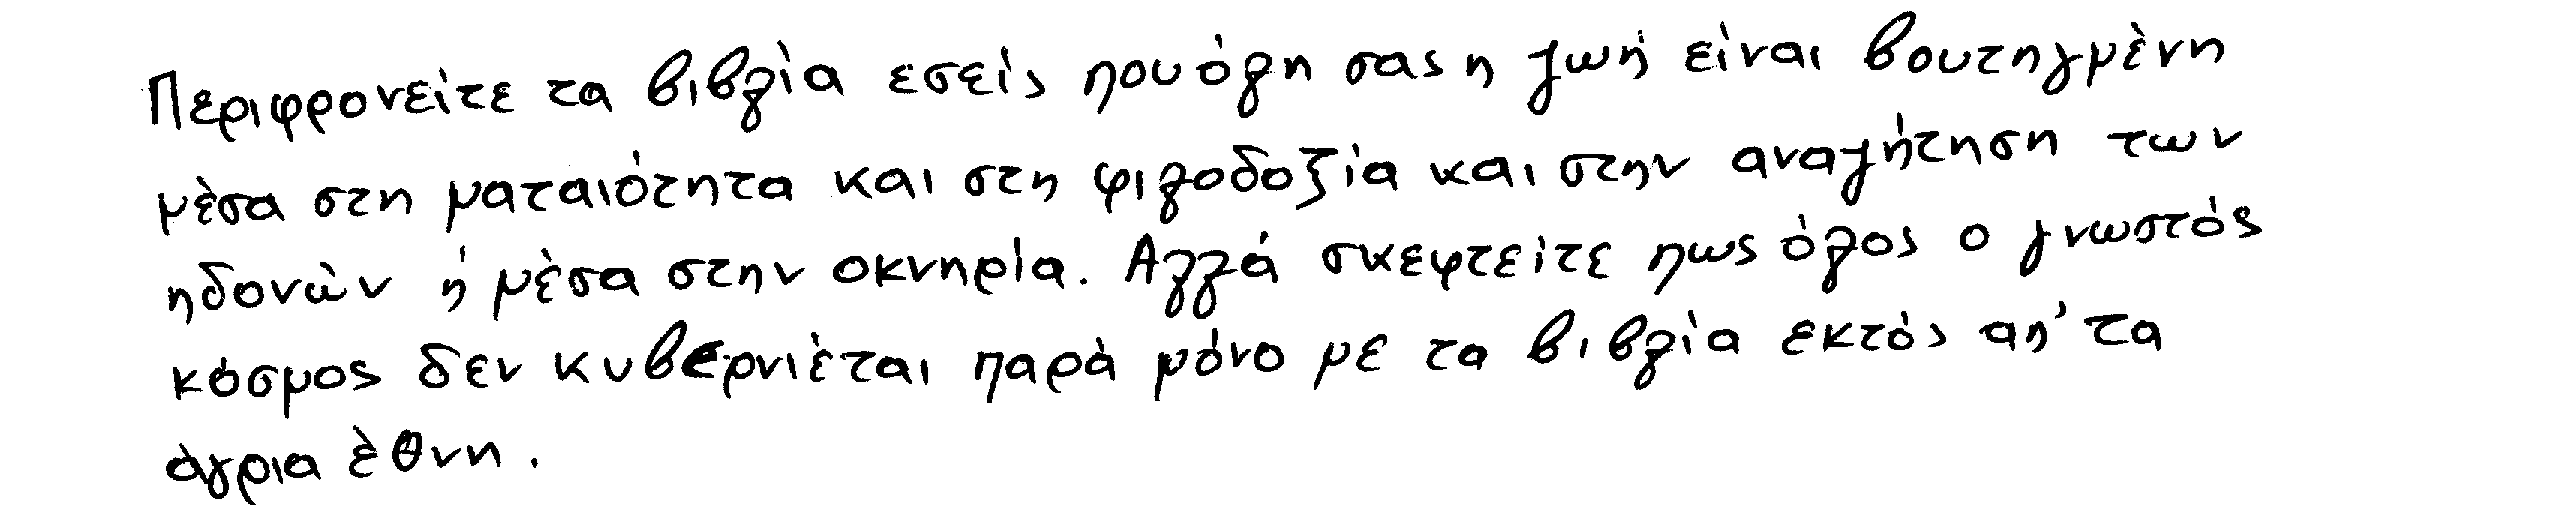 Περιφρονείτε τα βιβλία εσείς που όλη σας η ζωή είναι βουτηγμένη
μέσα στη ματαιότητα και στη φιλοδοξία και στην αναζήτηση των
ηδονών ή μέσα στην οκνηρία. Αλλά σκεφτείτε πως όλος ο γνωστός
κόσμος δεν κυβερνιέται παρά μόνο με τα βιβλία εκτός απ' τα
άγρια έθνη.